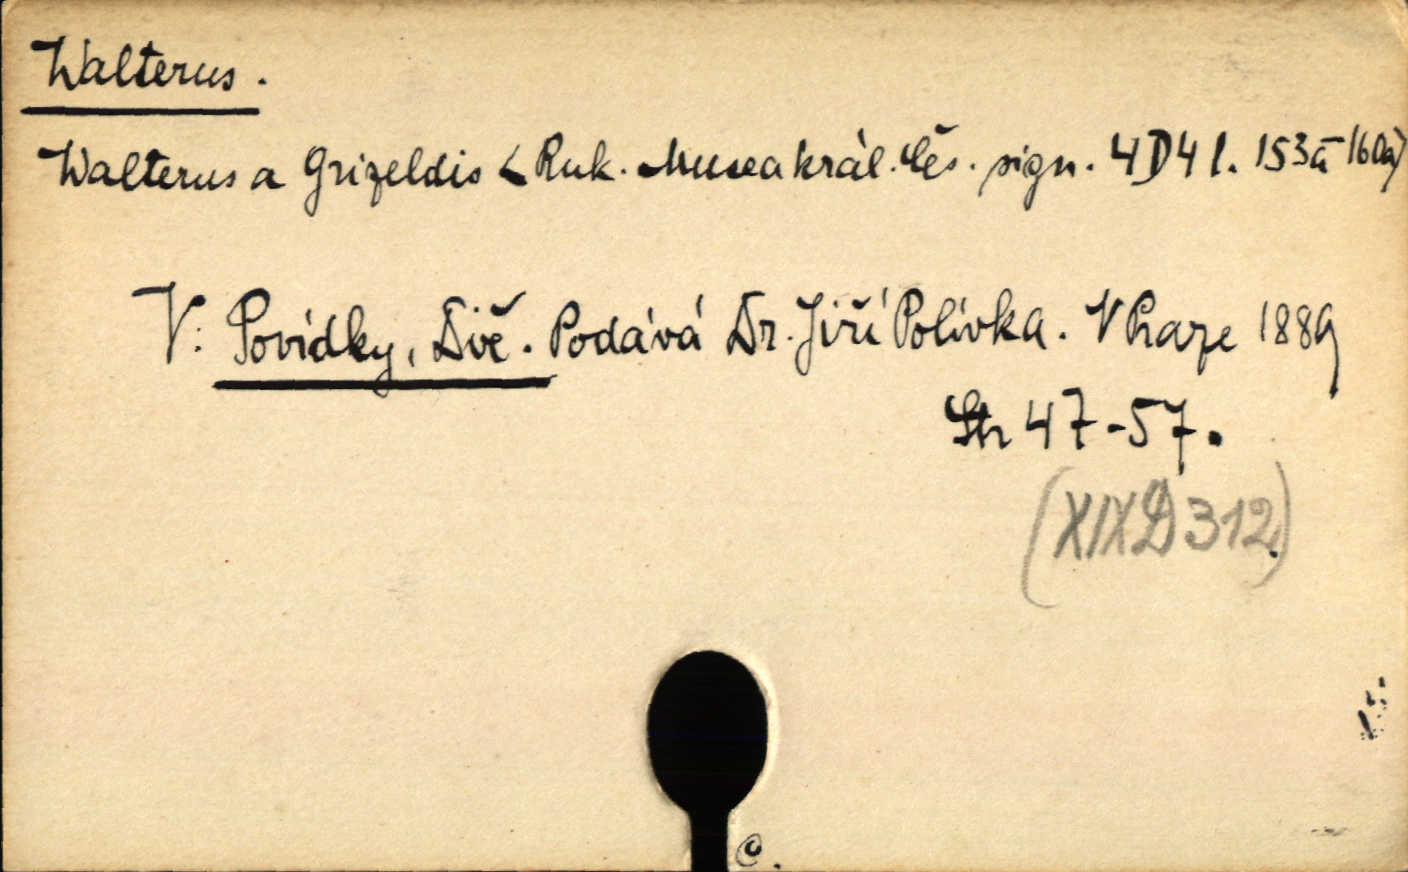 Walterus.
Walterus a Grizeldis < Ruk. Musea král. čes. sign. 4D4 l. 153a - 160a)
V: Povídky, Dvě. Podává Dr. Jiří Polívka. V Praze 1889
Str 47-57.
(XIX D 312)
C.